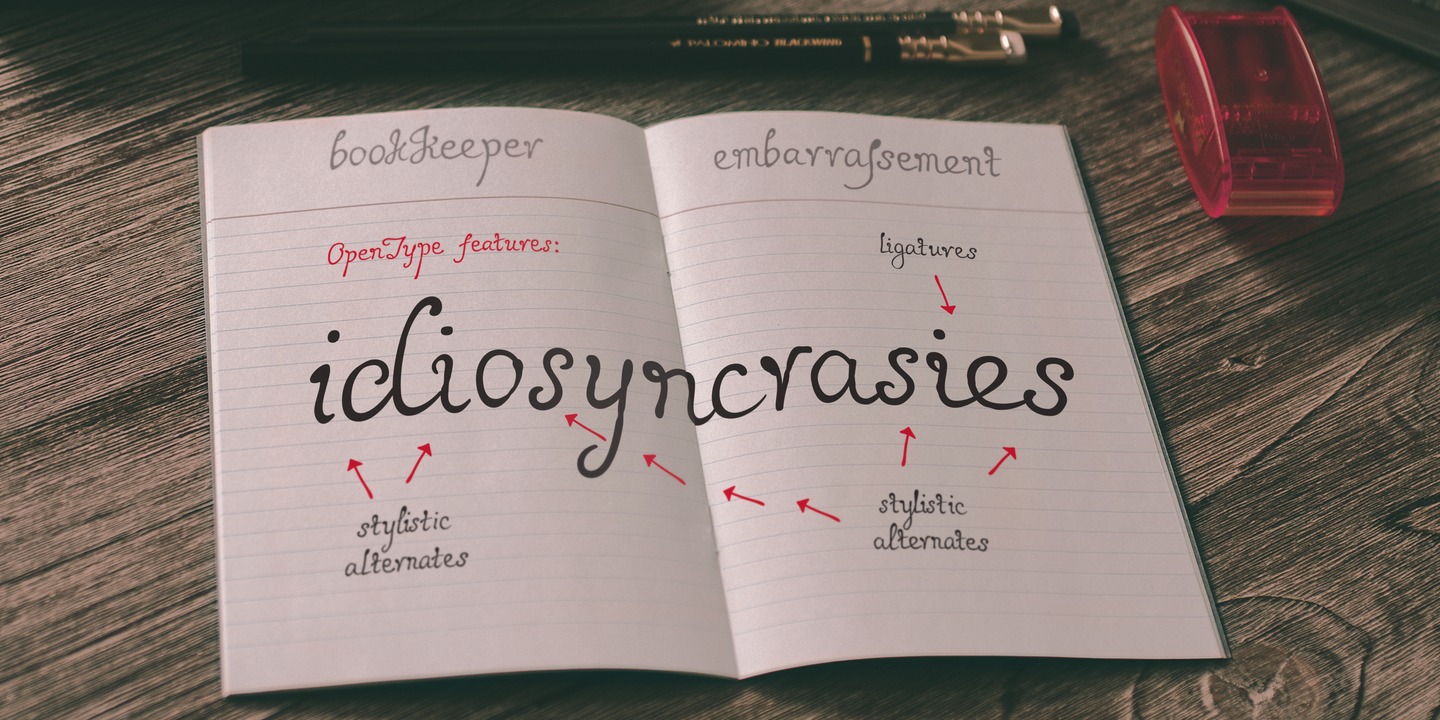 PALOMINO BLACKWING
bookkeeper
embarraſsement
OpenType features:
ligatures
idiosyncrasies
stylistic
alternates
stylistic
alternates